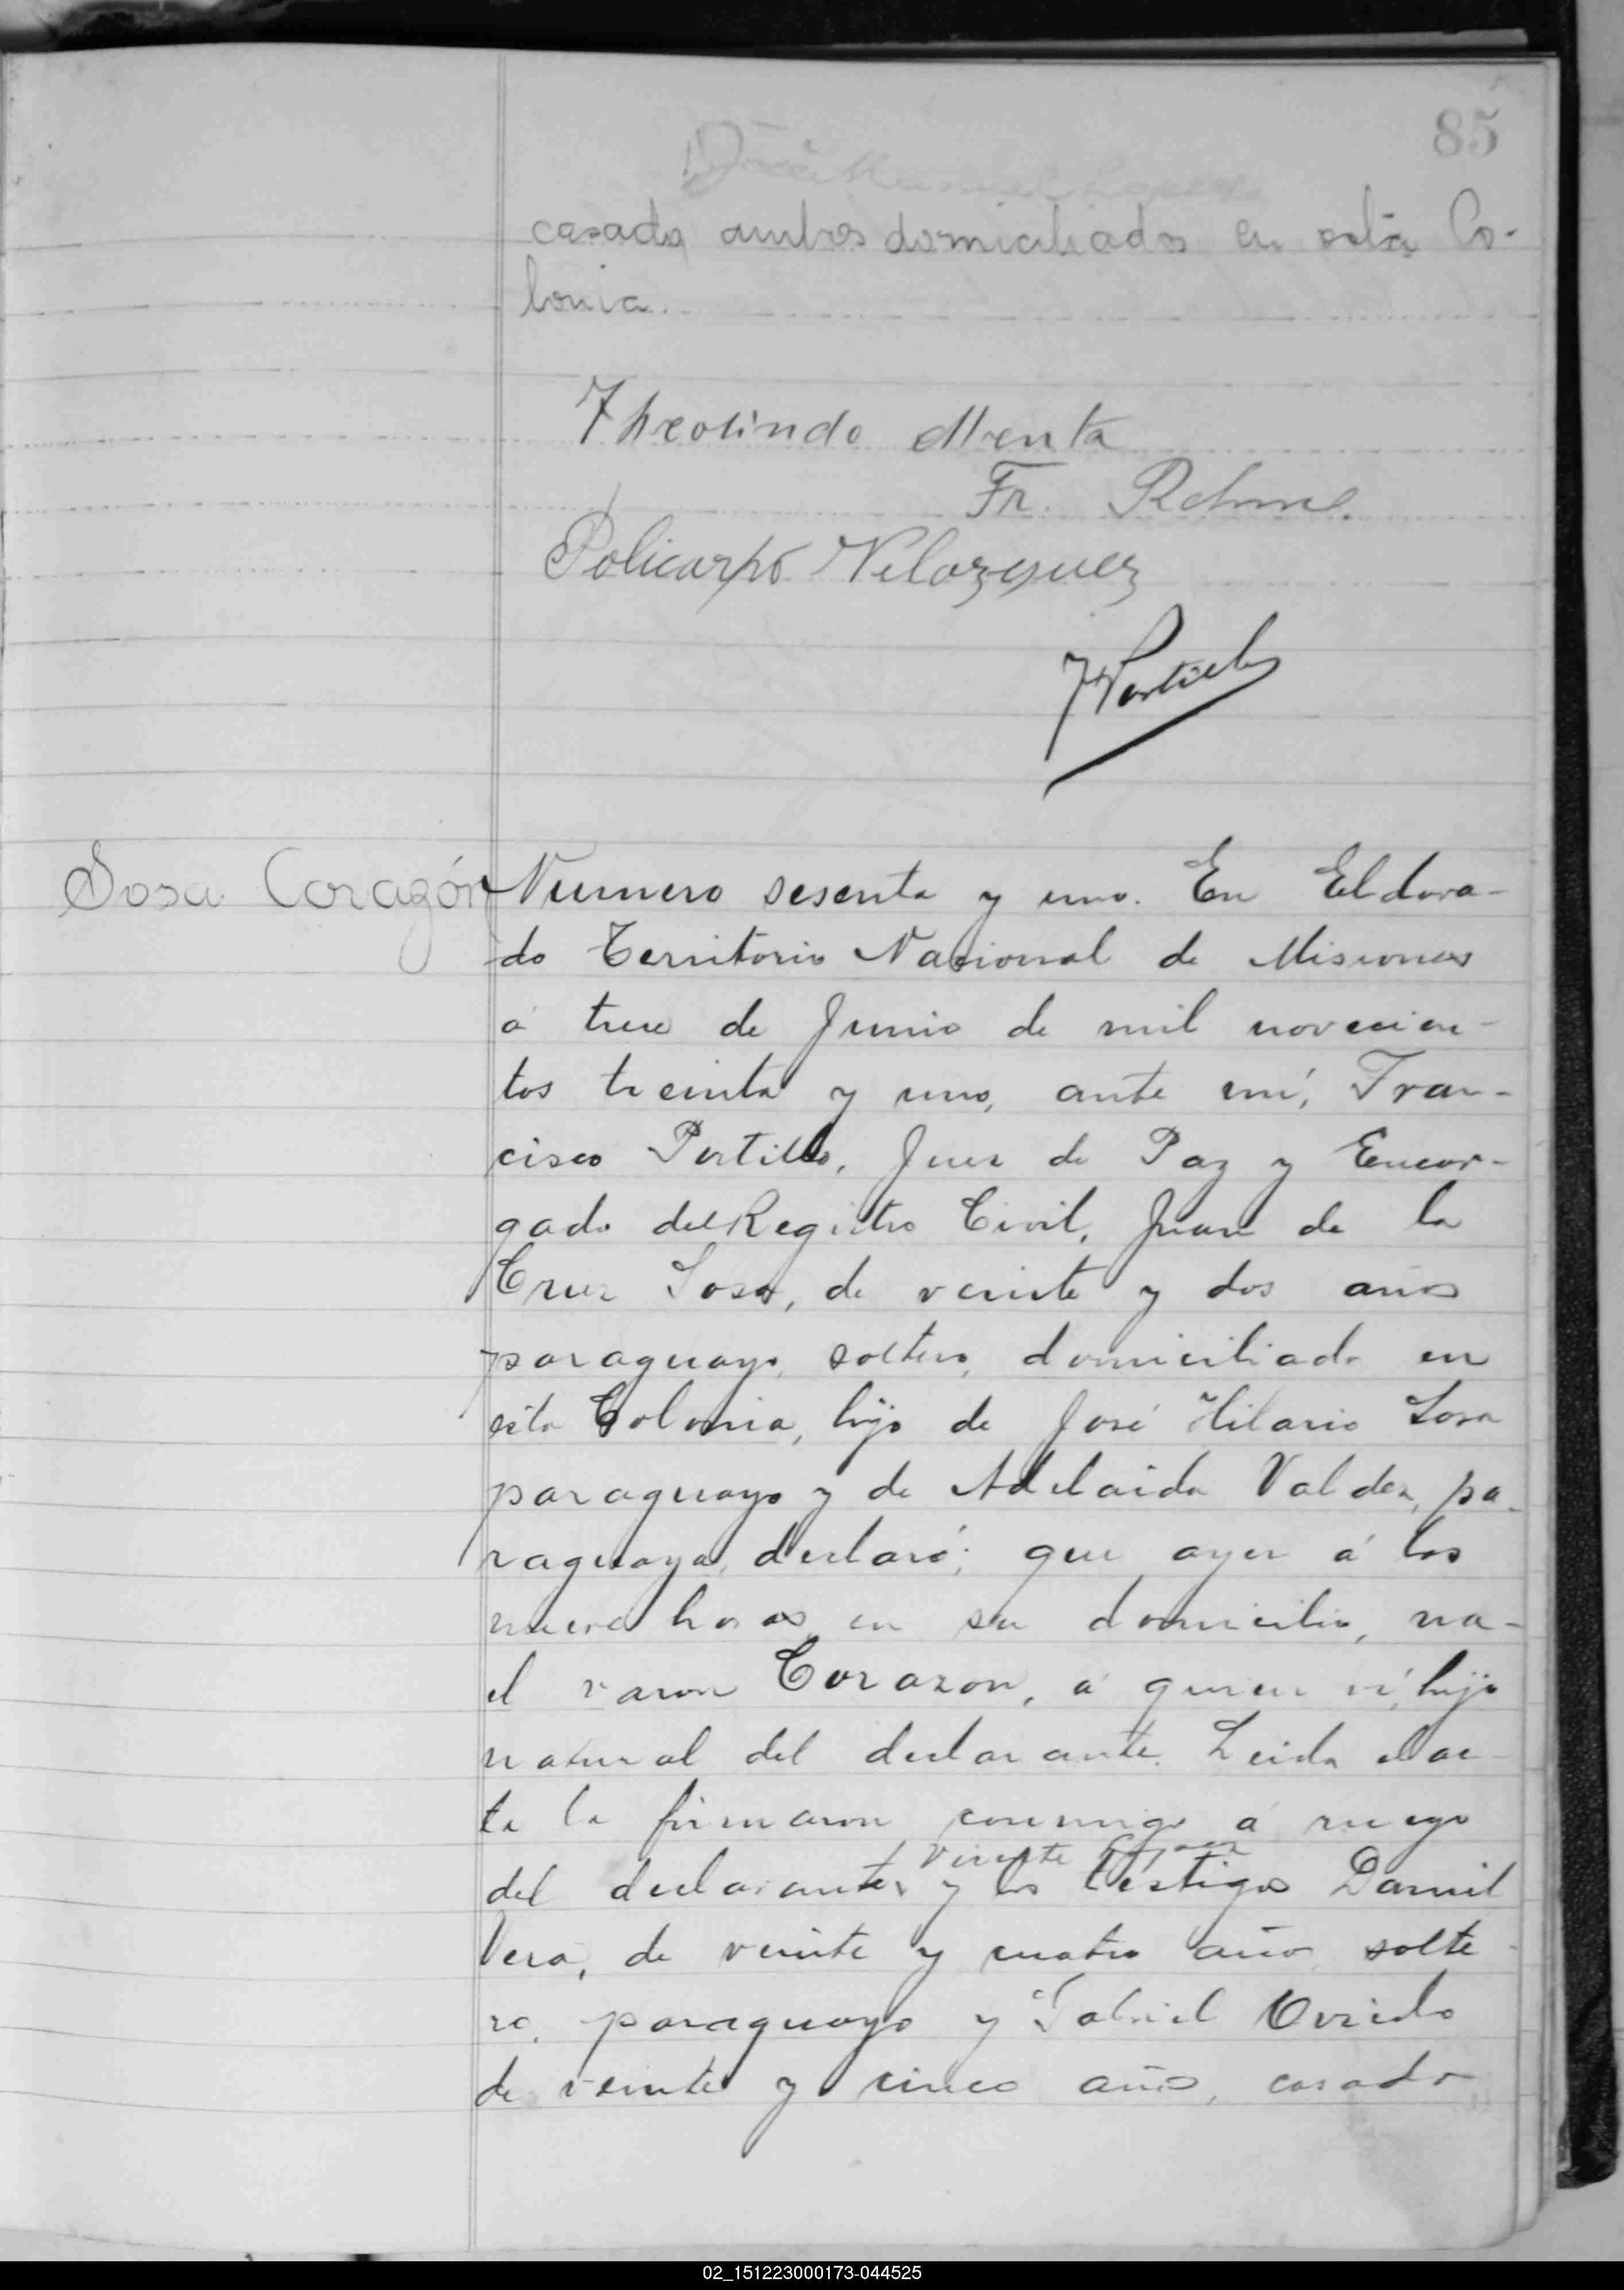 85
casado, ambos domiciliados en esta Co-
lonia.
Theolindo Menta
Fr.
Policarpo Velazquez
FPortillo
Sosa Corazón
Numero sesenta y uno. En Eldora-
do Territorio Nacional de Misiones
á trece de Junio de mil novecien-
tos treinta y uno, ante mí, Fran-
cisco Portillo, Juez de Paz y Encar-
gado del Registro Civil, Juan de la
Cruz Sosa, de veinte y dos años
paraguayo, soltero, domiciliado en
esta Colonia, hijo de José Hilario Sosa
paraguayo y de Adelaida Valdez, pa-
raguaya, declaró; que ayer á las
nueve horas, en su domicilio, na-
el varon Corazon, á quien ví, hijo
natural del declarante. Leida el ac-
ta la firmaron conmigo á ruego
Vicente
del declarante, y los testigos Daniel
Vera, de veinte y cuatro años, solte-
ro, paraguayo y Gabriel Oviedo
de veinte y cinco años, casado
02_151223000173-044525